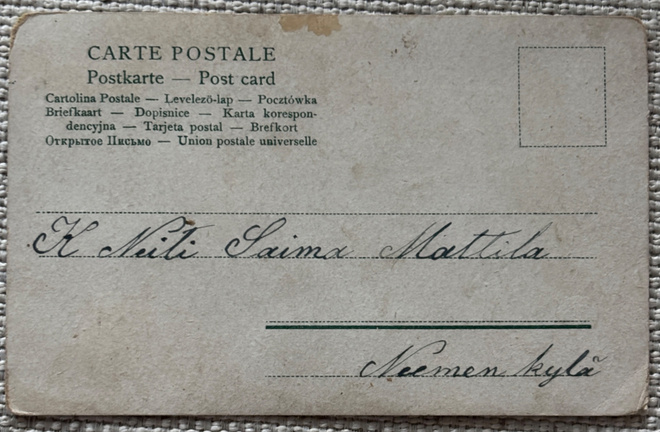 CARTE POSTALE
Postkarte — Post card
Cartolina Postale — Levelező-lap — Pocztówka
Briefkaart — Dopisnice — Karta korespon-
dencyjna — Tarjeta postal — Brefkort
Открытое Письмо — Union postale universelle
K Neiti Saima Mattila
Neemen kylä